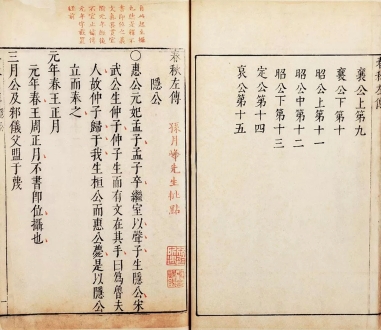 春秋左傳
襄公上第九
襄公下第十
昭公上第十一
昭公中第十二
昭公下第十三
定公第十四
哀公第十五
春秋左傳
孫月峯先生批點
隱公
○惠公元妃孟子孟子卒繼室以聲子生隱公宋
武公生仲子仲子生而有文在其手曰爲魯夫
人故仲子歸于我生桓公而惠公薨是以隱公
立而奉之
元年春王正月
元年春王周正月不書即位攝也
三月公及邾儀父盟于蔑